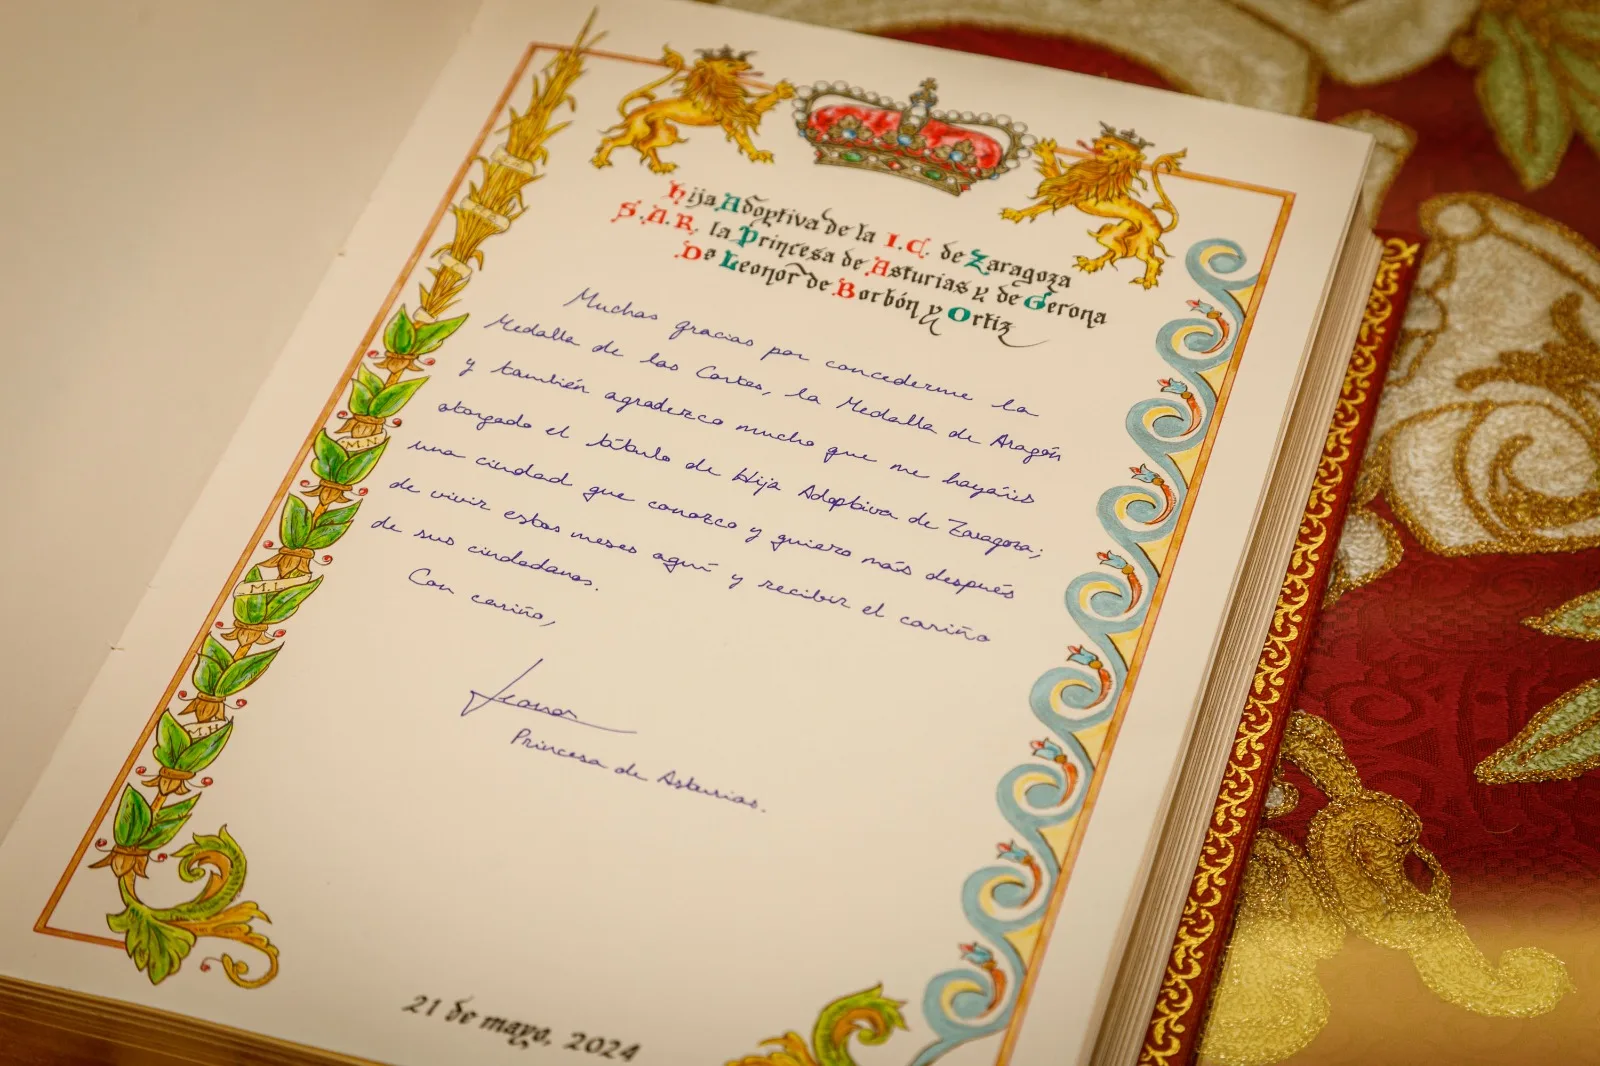 Hija Adoptiva de la I.C. de Zaragoza
S.A.R. la Princesa de Asturias y de Gerona
Dª Leonor de Borbón y Ortiz
Muchas gracias por concederme la
Medalla de las Cortes, la Medalla de Aragón
y también agradezco mucho que me hayáis
otorgado el título de Hija Adoptiva de Zaragoza;
una ciudad que conozco y quiero más después
de vivir estos meses aquí y recibir el cariño
de sus ciudadanos.
Con cariño,
Leonor
Princesa de Asturias.
M.N.
M.I.
21 de mayo, 2024